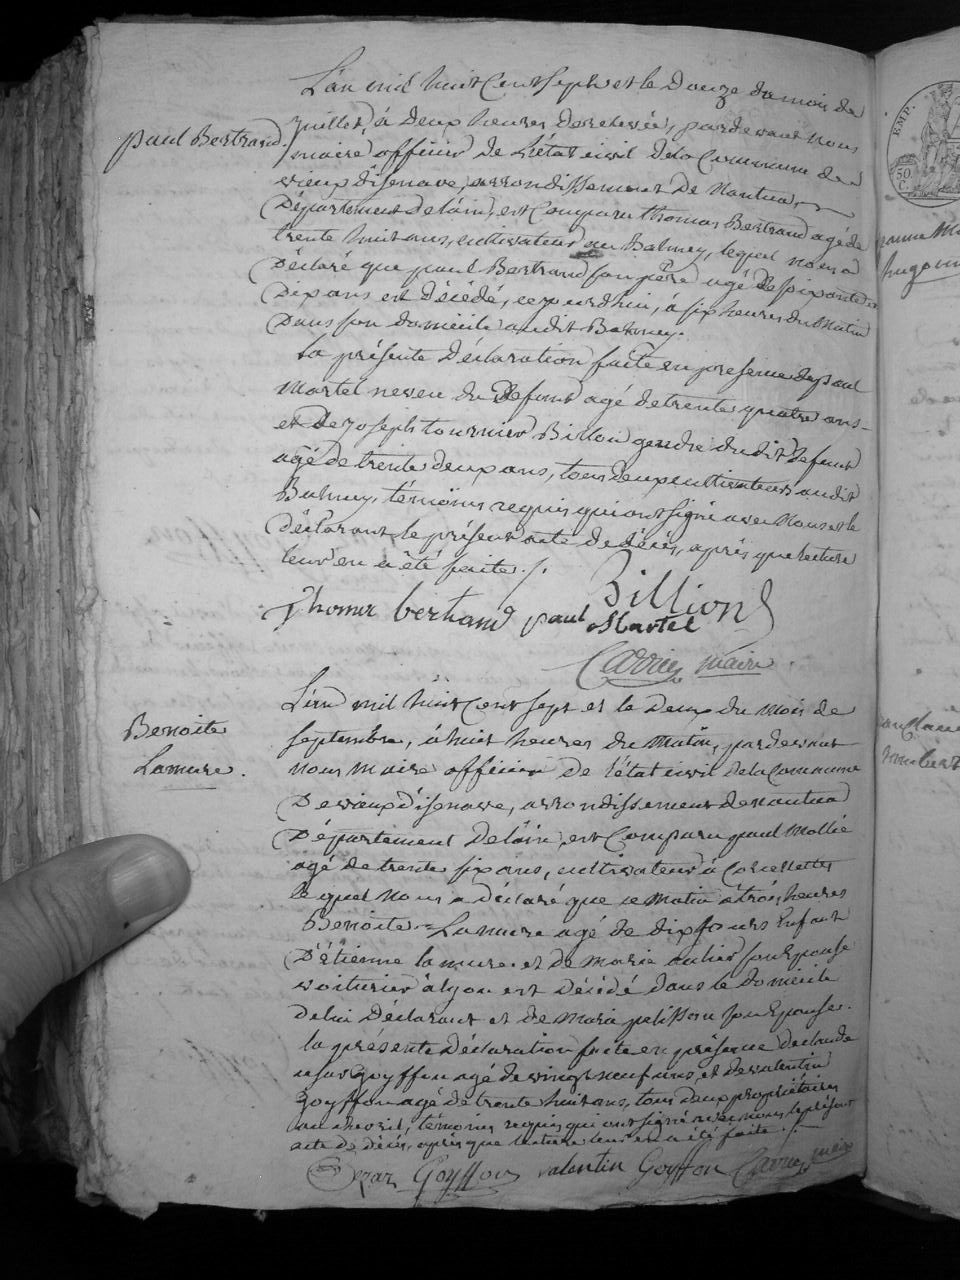 L'an mil huit Cent Sept et le Douze du mois de
paul Bertrand.
juillet, à Deux heures de relevée, pardevant nous
maire officier de L'état civil de la Commune de
vieux d'isenave, arrondissement de Nantua,
Département de l'ain, est Comparu thomas Bertrand agé de
trente huit ans, cultivateur au Balmey, lequel nous a
Déclaré que paul Bertrand son père agé de soixante et
Dix ans est décédé, cejourd'hui, à six heures du Matin
Dans son domicile audit Balmey.
La présente Déclaration faite en présence de paul
Martel neveu du Defunt agé de trente quatre ans
et de joseph tournier Billon gendre dudit defunt
agé de trente deux ans, tous deux cultivateurs audit
Balmey, témoins requis qui ont signé avec Nous et le
déclarant le présent acte de décès, après que lecture
leur en a été faite ./.
Thomas bertrand paul Martel Billion
Carrier maire.
Benoite
Lamure.
L'an mil huit Cent Sept et le Deux du Mois de
Septembre, à huit heures du Matin, pardevant
nous maire officier de l'état civil de la Commune
De vieux d'isenave, arrondissement de nantua
Département de l'ain, est Comparu paul Mollie
agé de trente six ans, cultivateur à
le quel Nous a déclaré que ce Matin à trois heures
Benoite = Lamure agé de dix jours Enfant
D'étienne lamure et de Marie son Epouse
voiturier à lyon est Décédé dans le domicile
de lui Déclarant et de Maria pelisson son Epouse.
la présente déclaration faite en présence de claude
Goyffon agé de vingt neuf ans, et de valentin
Goyffon agé de trente huit ans, tous deux propriétaires
au chevril, témoins requis qui ont signé avec nous le présent
acte de décès, après que lecture leur en a été faite ./.
Sezar Goyffon valentin Goyffon Carrier maire
EMP.
50.
C.